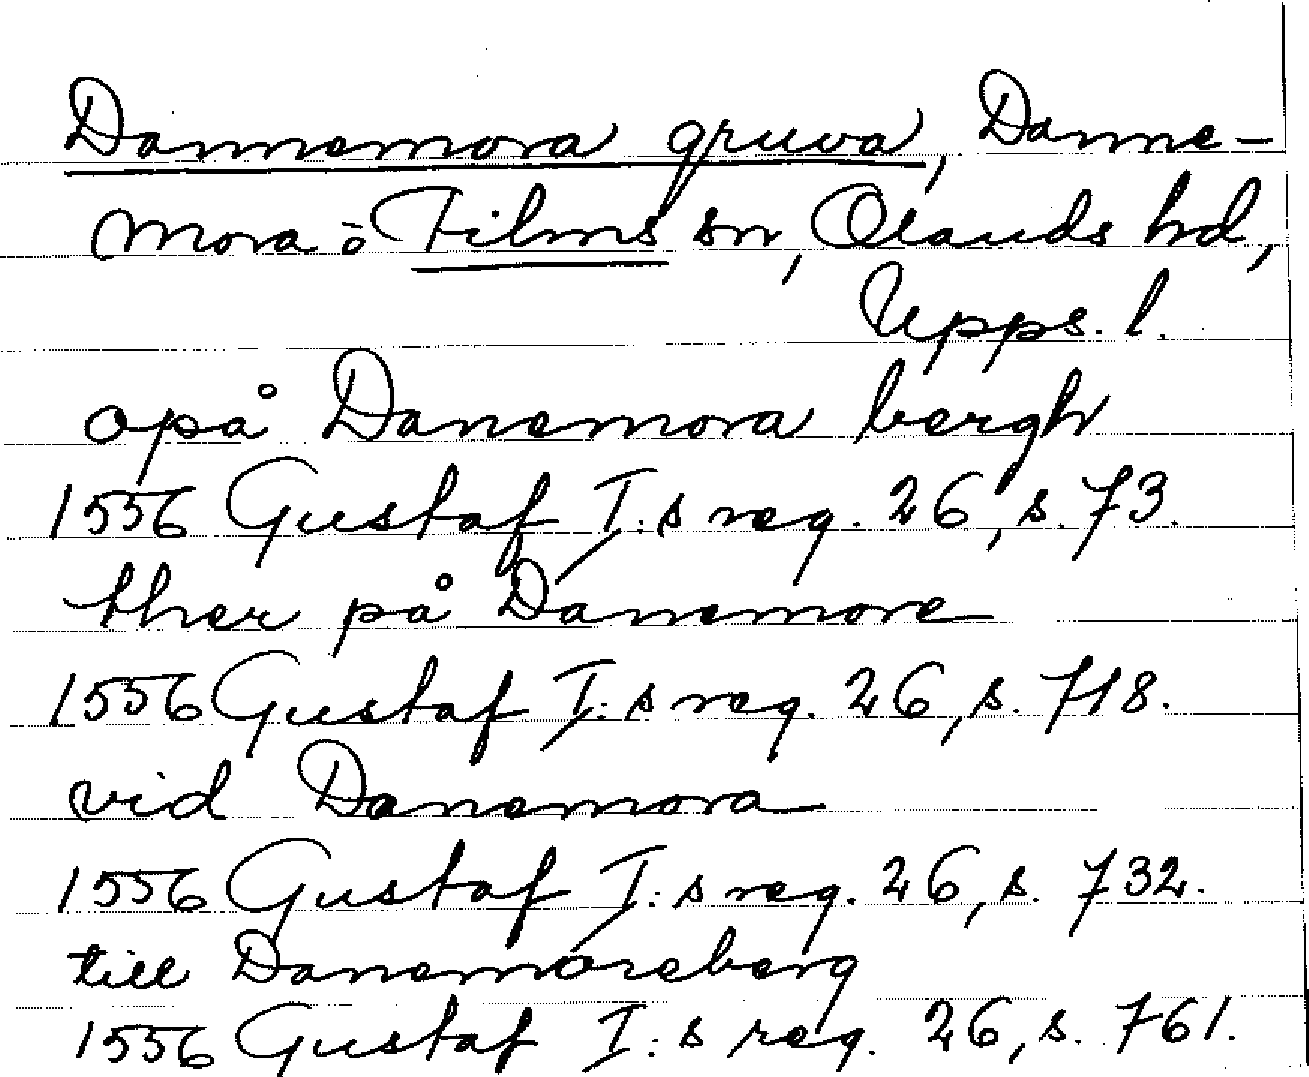 Dannemora gruva, Danne-
mora o Films sn, Olands hd,
Upps. l.
opå Danemora bergh
1556 Gustaf I:s reg. 26, s. 73.
ther på Danemore
1556 Gustaf I:s reg. 26, s. 718.
vid Danemora
1556 Gustaf I:s reg. 26, s. 732.
till Danemoreberg
1556 Gustaf I:s reg. 26, s. 761.